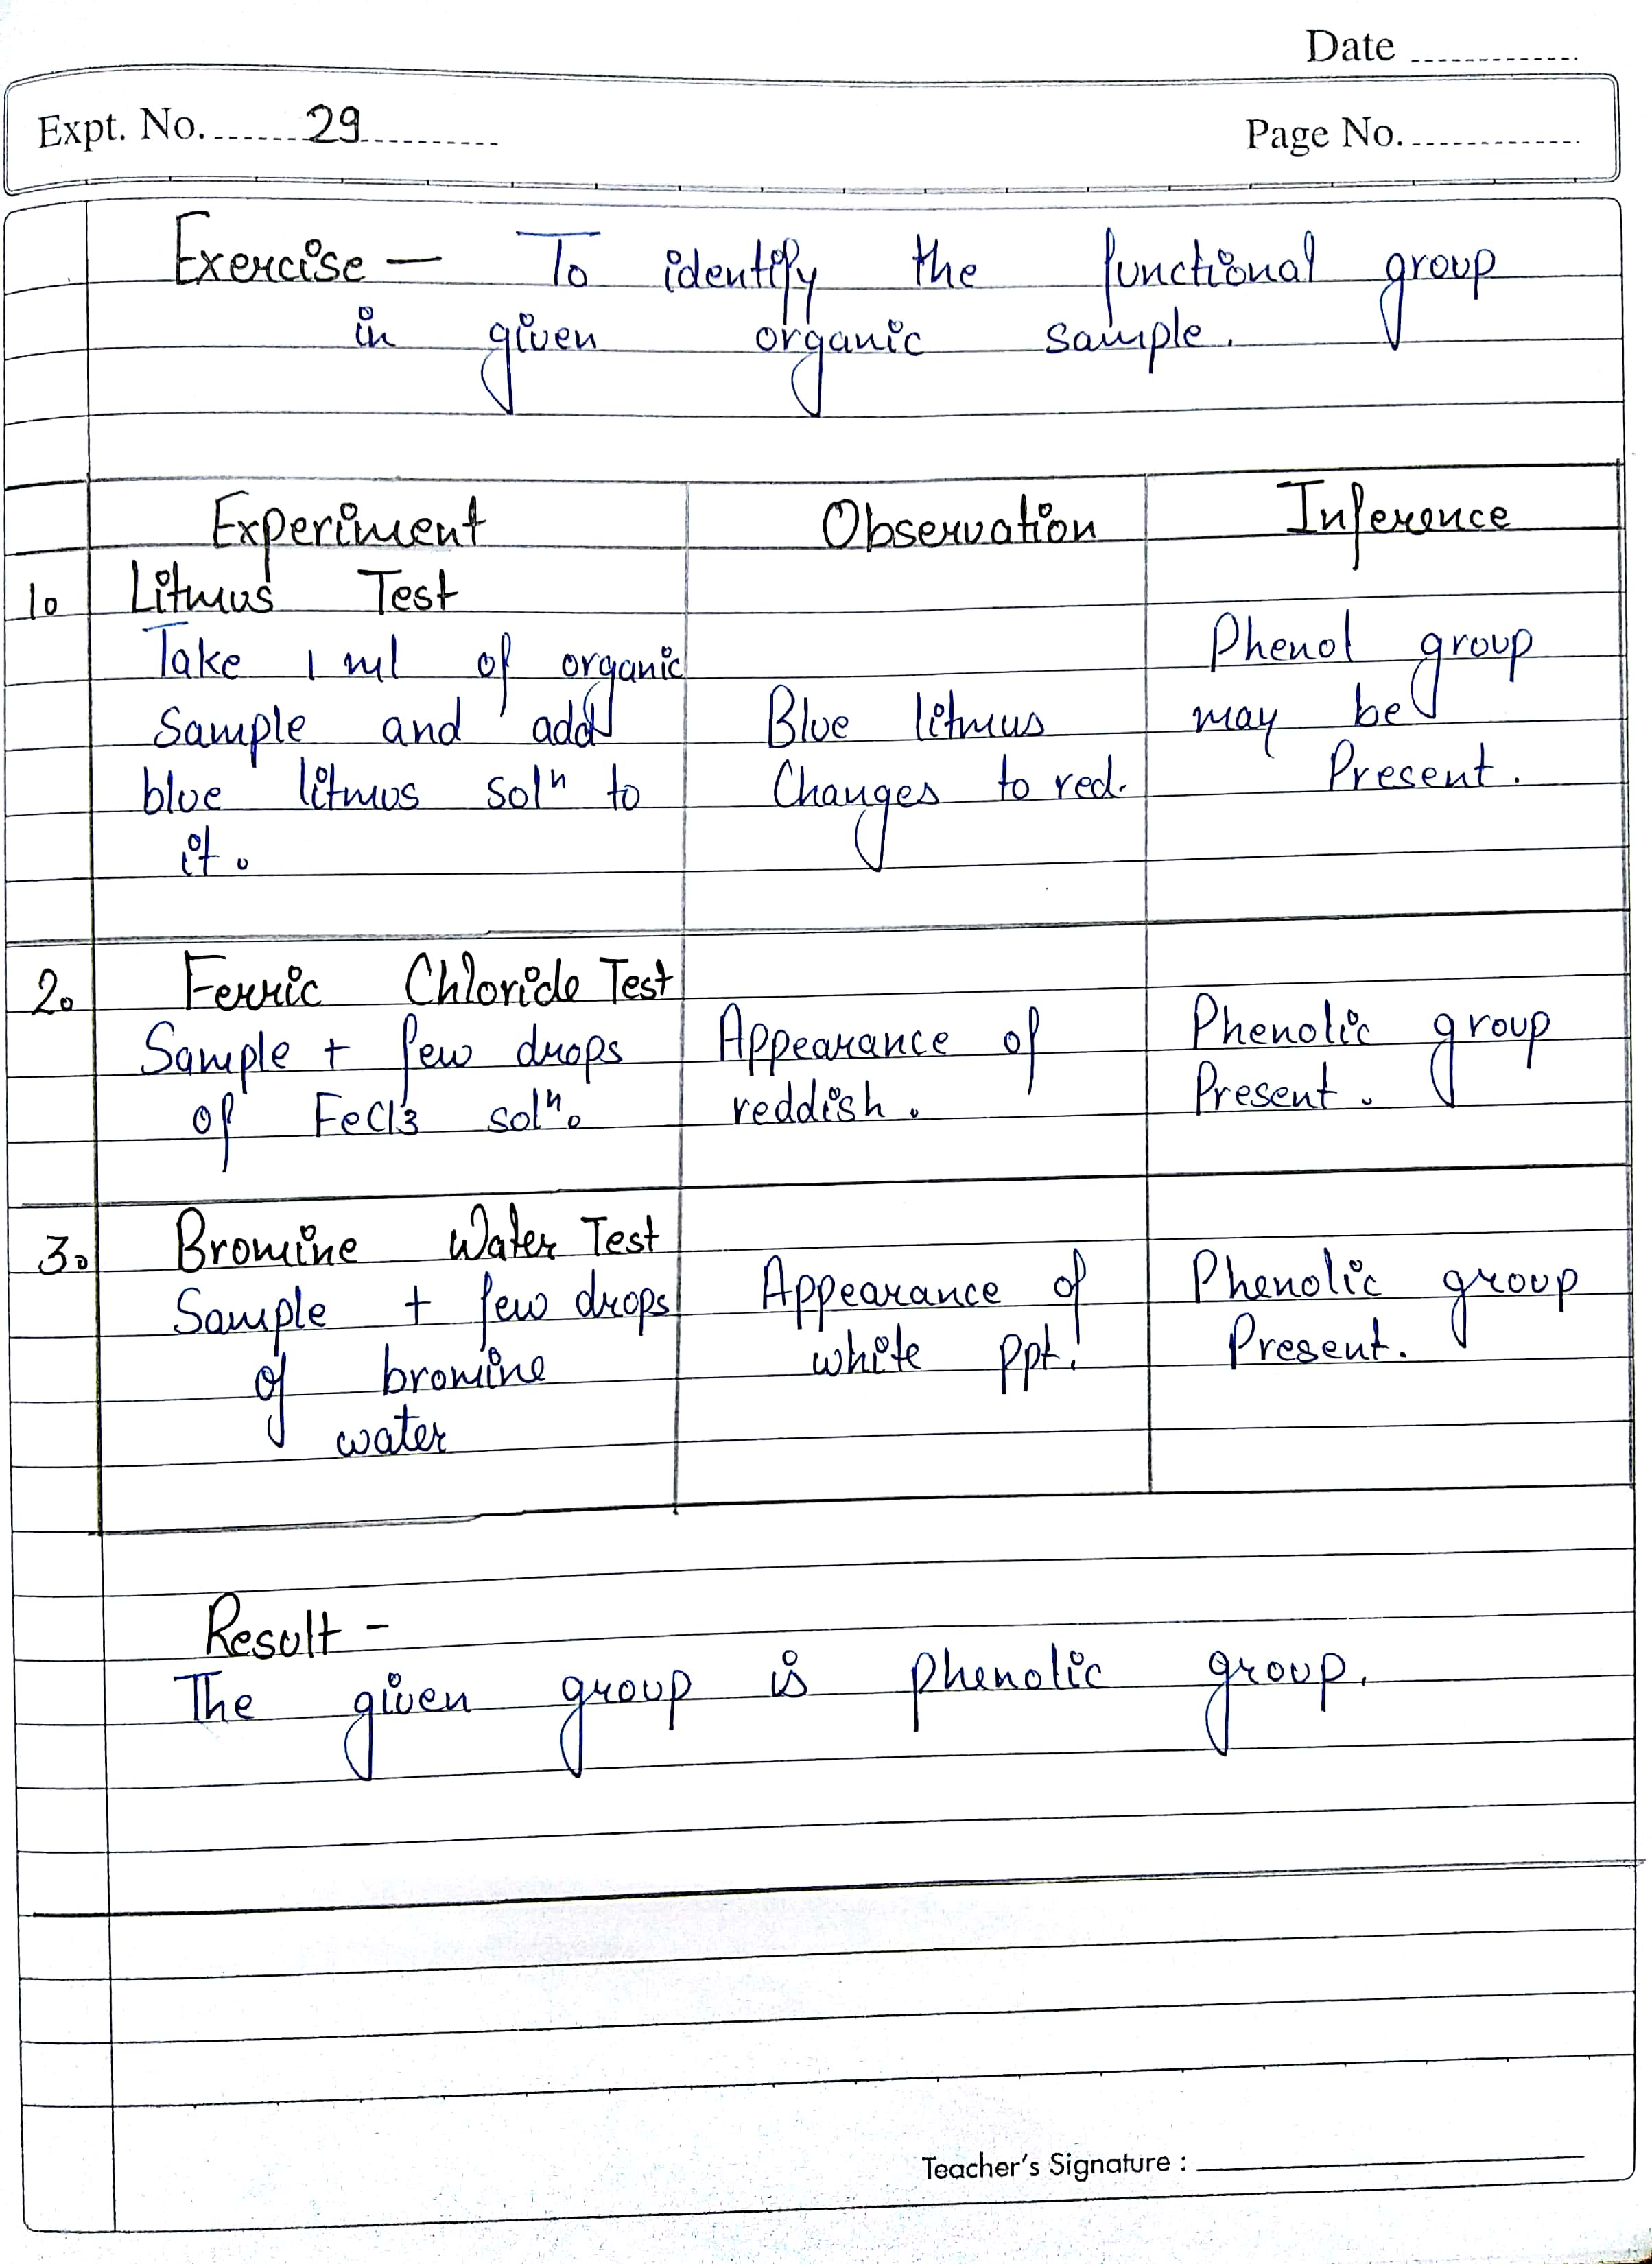 Date
Expt. No. 29
Page No.
Exercise — To identify the functional group
in given organic sample.
Experiment Observation Inference
1. Litmus Test
Take 1 ml of organic
Sample and add
blue litmus solⁿ to
it.
Blue litmus
Changes to red.
Phenol group
may be
Present.
2. Ferric Chloride Test
Sample + few drops
of FeCl3 solⁿ.
Appearance of
reddish.
Phenolic group
Present.
3. Bromine Water Test
Sample + few drops
of bromine
water
Appearance of
white ppt.
Phenolic group
Present.
Result -
The given group is phenolic group.
Teacher's Signature :